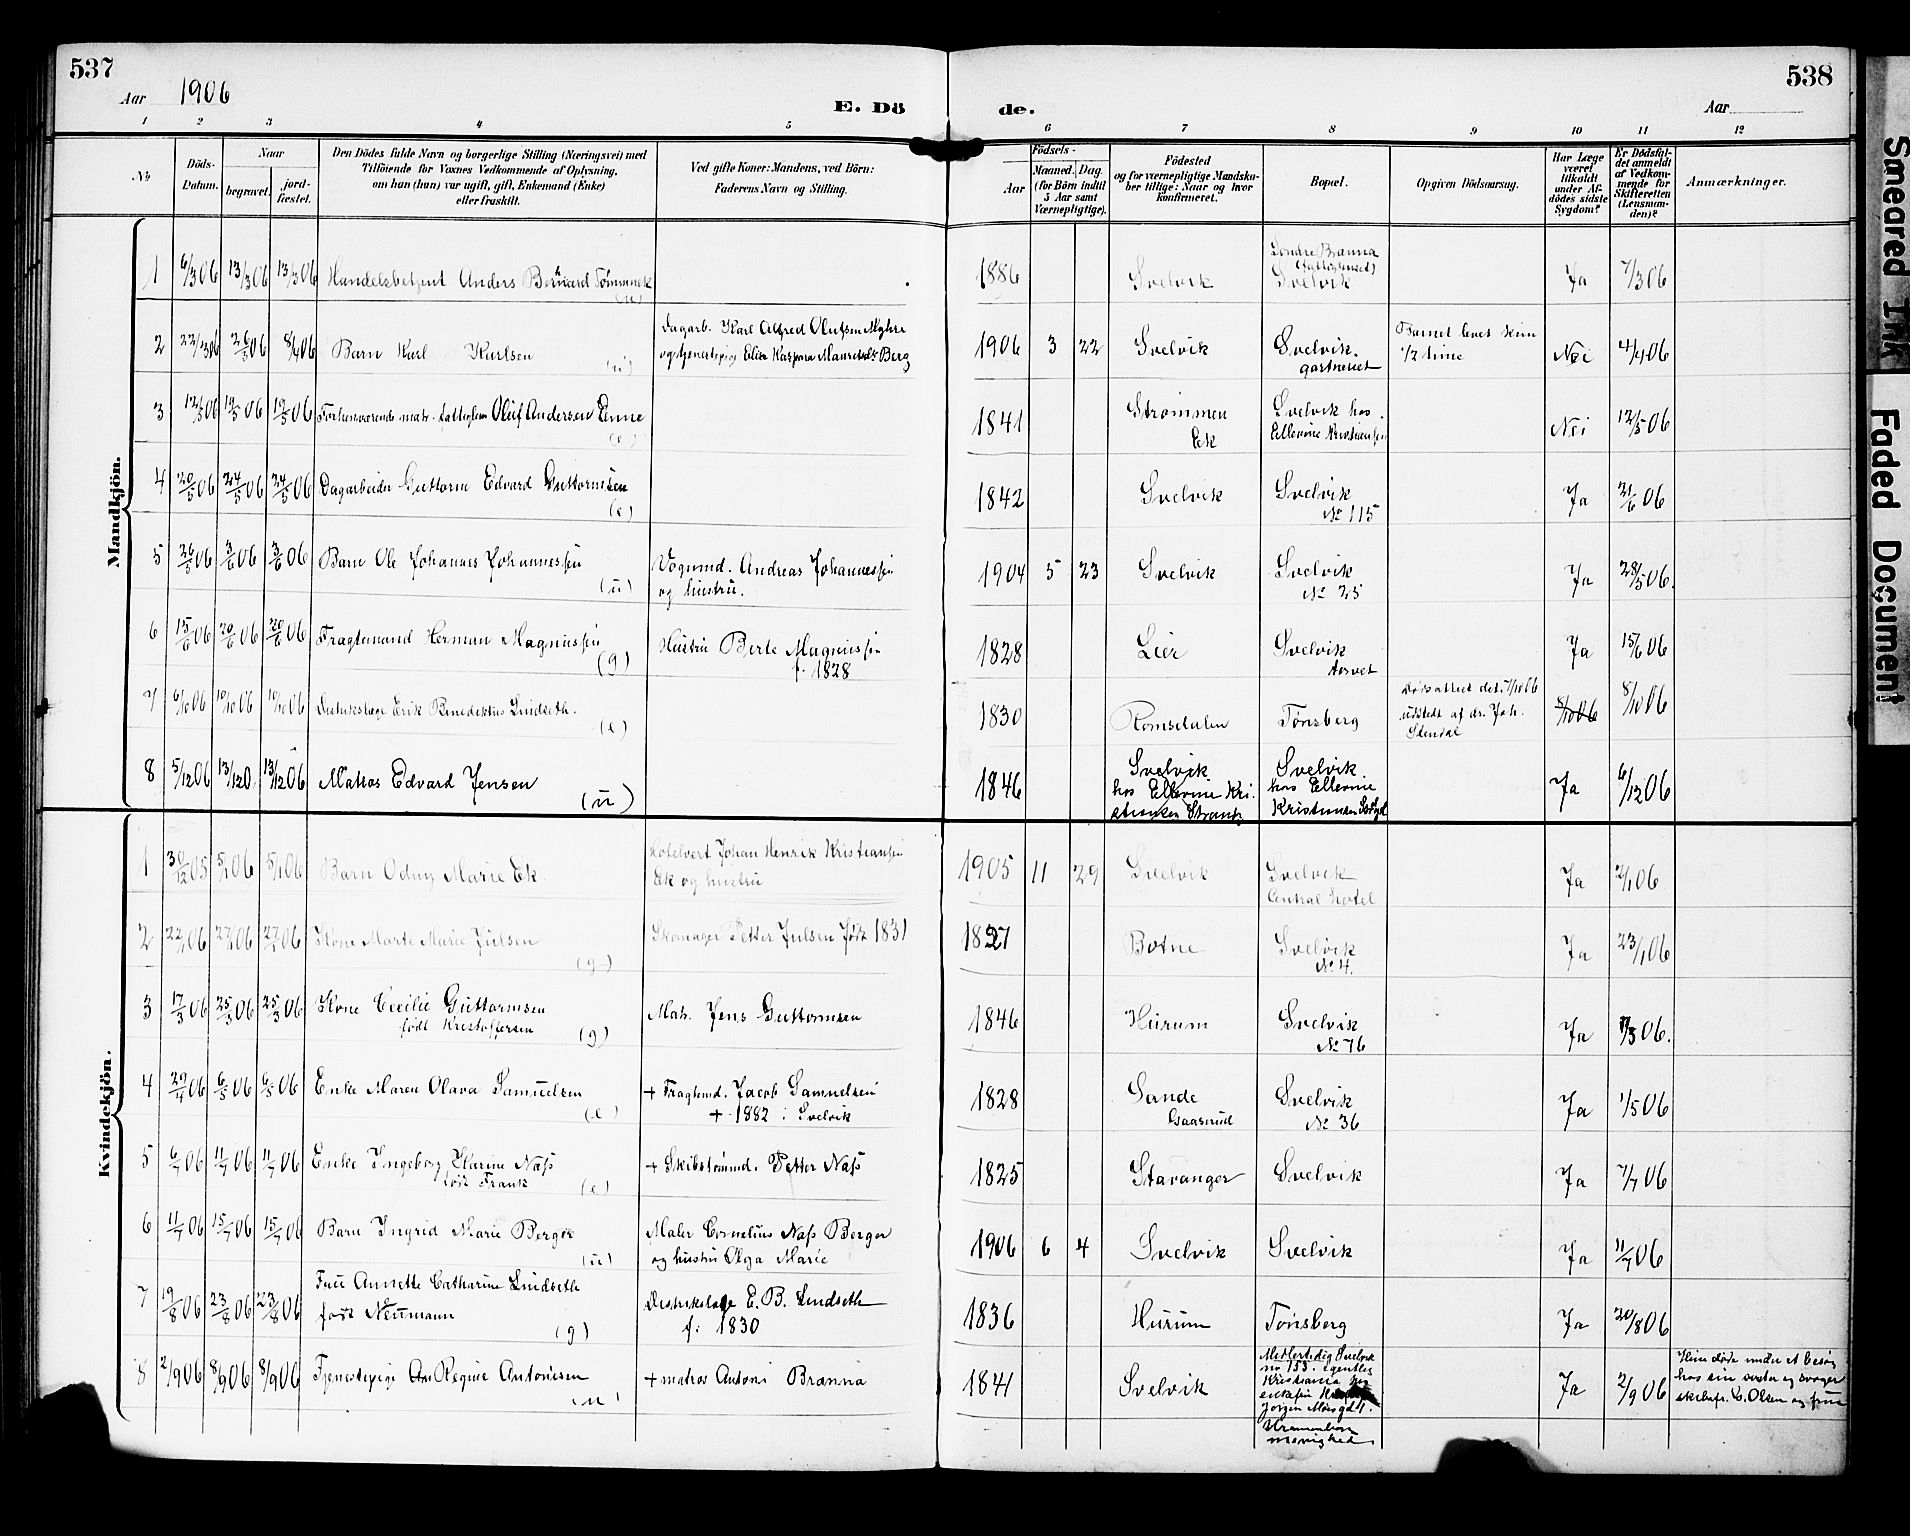 537
Aar 1906
E. Dö
de.
538
Aar
1 2 3 4 5 6 7 8 9 10 11 12
№
Döds-
Datum.
Naar
begravet.
jord-
fæstet.
Den Dödes fulde Navn og borgerlige Stilling (Næringsvei) med
Tilföiende for Voxnes Vedkommende af Oplysning,
om han (hun) var ugift, gift, Enkemand (Enke)
eller fraskilt.
Ved gifte Koner: Mandens, ved Börn:
Faderens Navn og Stilling.
Födsels-
Aar
Maaned. Dag.
(for Börn indtil
5 Aar samt
Værnepligtige).
Födested
og for værnepligtige Mandska-
ber tillige: Naar og hvor
konfirmeret.
Bopæl.
Opgiven Dödsaarsag.
Har Læge
været
tilkaldt
under Af-
dödes sidste
Sygdom?
Er Dödsfal-
det anmeldt
af Vedkom-
mende for
Skifteretten
(Lensman-
den)?
Anmærkninger.
Mandkjön.
1 6/3 06 13/3 06 13/3 06 Handelsbetjent Anders Bernard 1886 Svelvik Söndre Brænna
Svelvik Ja 7/3 06
2 22/3 06 8/4 06 Barn Karl Karlsen (u) Dagarb. Karl Alfred Olufsen Myhre
Berg 1906 3 22 Svelvik Svelvik.
gartneriet Barnet levet kun
1/2 time Nei 4/4 06
3 12/5 06 19/5 06 19/5 06 Oluf Andersen Enne (e) 1841 Strömmen
Ek Svelvik hos
Ellevine Kristiansen Nei 12/5 06
4 20/5 06 24/5 06 24/5 06 Dagarbeider Guttorm Edvard Guttormsen (e) 1842 Svelvik Svelvik
№ 115 Ja 21/6 06
5 26/5 06 3/6 06 3/6 06 Barn Ole Johannes Johannessen (u) Vognmd. Andreas Johannessen
og hustru. 1904 5 23 Svelvik Svelvik
№ 25 Ja 28/5 06.
6 15/6 06 20/6 06 20/6 06 Fragtemand Herman Magnussen (g) Hustru Berte Magnussen
f. 1828 1828 Lier Svelvik Ja 15/6 06
7 6/10 06 10/10 06 10/10 06 Distriktslæge Erik Benediktus Lindseth. (e) 1830 Romsdalen Tönsberg Dödsattest dat. 7/10 06
udstedt af dr. Joh.
8/10 06 8/10 06
8 5/12 06 13/12 0. 13/12 06 Matros Edvard Jensen (u) 1846 Svelvik
hos Ellevine Kri-
stiansen Svelvik.
hos Ellevine
Kristiansen Ja 6/12 06
Kvindekjön.
1 30/12 05 5/1 06 5/1 06 Barn Odny Marie Ek. Hotelvert Johan Henrik Kristiansen
Ek og hustru 1905 11 29 Svelvik Svelvik
Central hotel Ja 2/1 06
2 22/1 06 27/1 06 27/1 06 Kone Marte Marie Julsen (g) Skomager Petter Julsen födt 1831 1827 Botne Svelvik
№ 4. Ja 23/1 06
3 17/3 06 25/3 06 25/3 06 Kone Cecilie Guttormsen
födt Kristoffersen (g) Matr. Jens Guttormsen 1846 Hurum Svelvik
№ 76 Ja 3 06.
4 29/4 06 6/5 06 6/5 06 Enke Maren Olava Samuelsen (e) + Fragtemd. Jacob Samuelsen
+ 1882 i Svelvik 1828 Sande
Gaaserud Svelvik
№ 36 Ja 1/5 06
5 6/7 06 11/7 06 11/7 06 Enke Ingeborg Karine Næss
födt Frank (e) + Skibstömmd. Petter Næss 1825 Stavanger Svelvik Ja 7/7 06
6 11/7 06 15/7 06 15/7 06 Barn Ingrid Marie Berger (u) Maler Cornelius Næss Berger
og hustru Olga Marie 1906 6 4 Svelvik Svelvik Ja 11/7 06
7 19/8 06 23/8 06 23/8 06 Frue Annette Catharine Lindseth
født Neumann (g) Distriktslæge E. B. Lindseth
f. 1830 1836 Hurum Tönsberg Ja 20/8 06
8 2/9 06 8/9 06 8/9 06 Tjenestepige An Regine Antonisen u + matros Antoni Brænna 1841 Svelvik Midlertidig Svelvik
no 153. egentlig
Kristiania hos
Jörgen
Ja 2/9 06 Hun döde under et besög
hos sin söster og svoger
skibsf. C. Olsen og frue
Smeared Ink
Faded Document